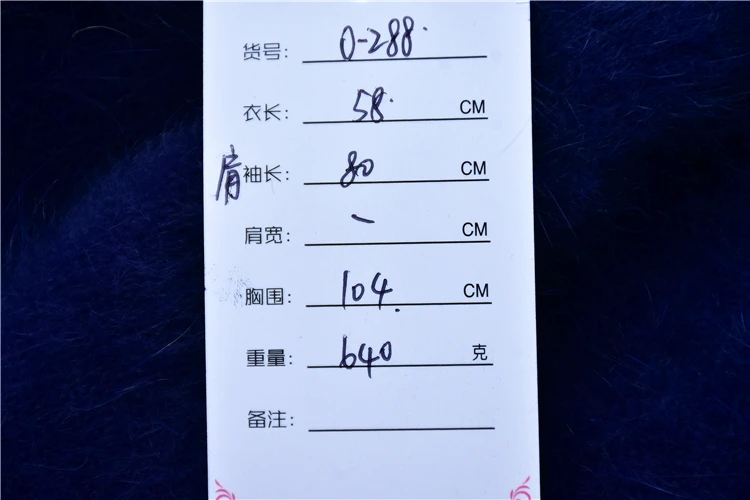 货号: 0-288.
衣长: 58. CM
肩袖长: 80 CM
肩宽: - CM
胸围: 104. CM
重量: 640 克
备注: